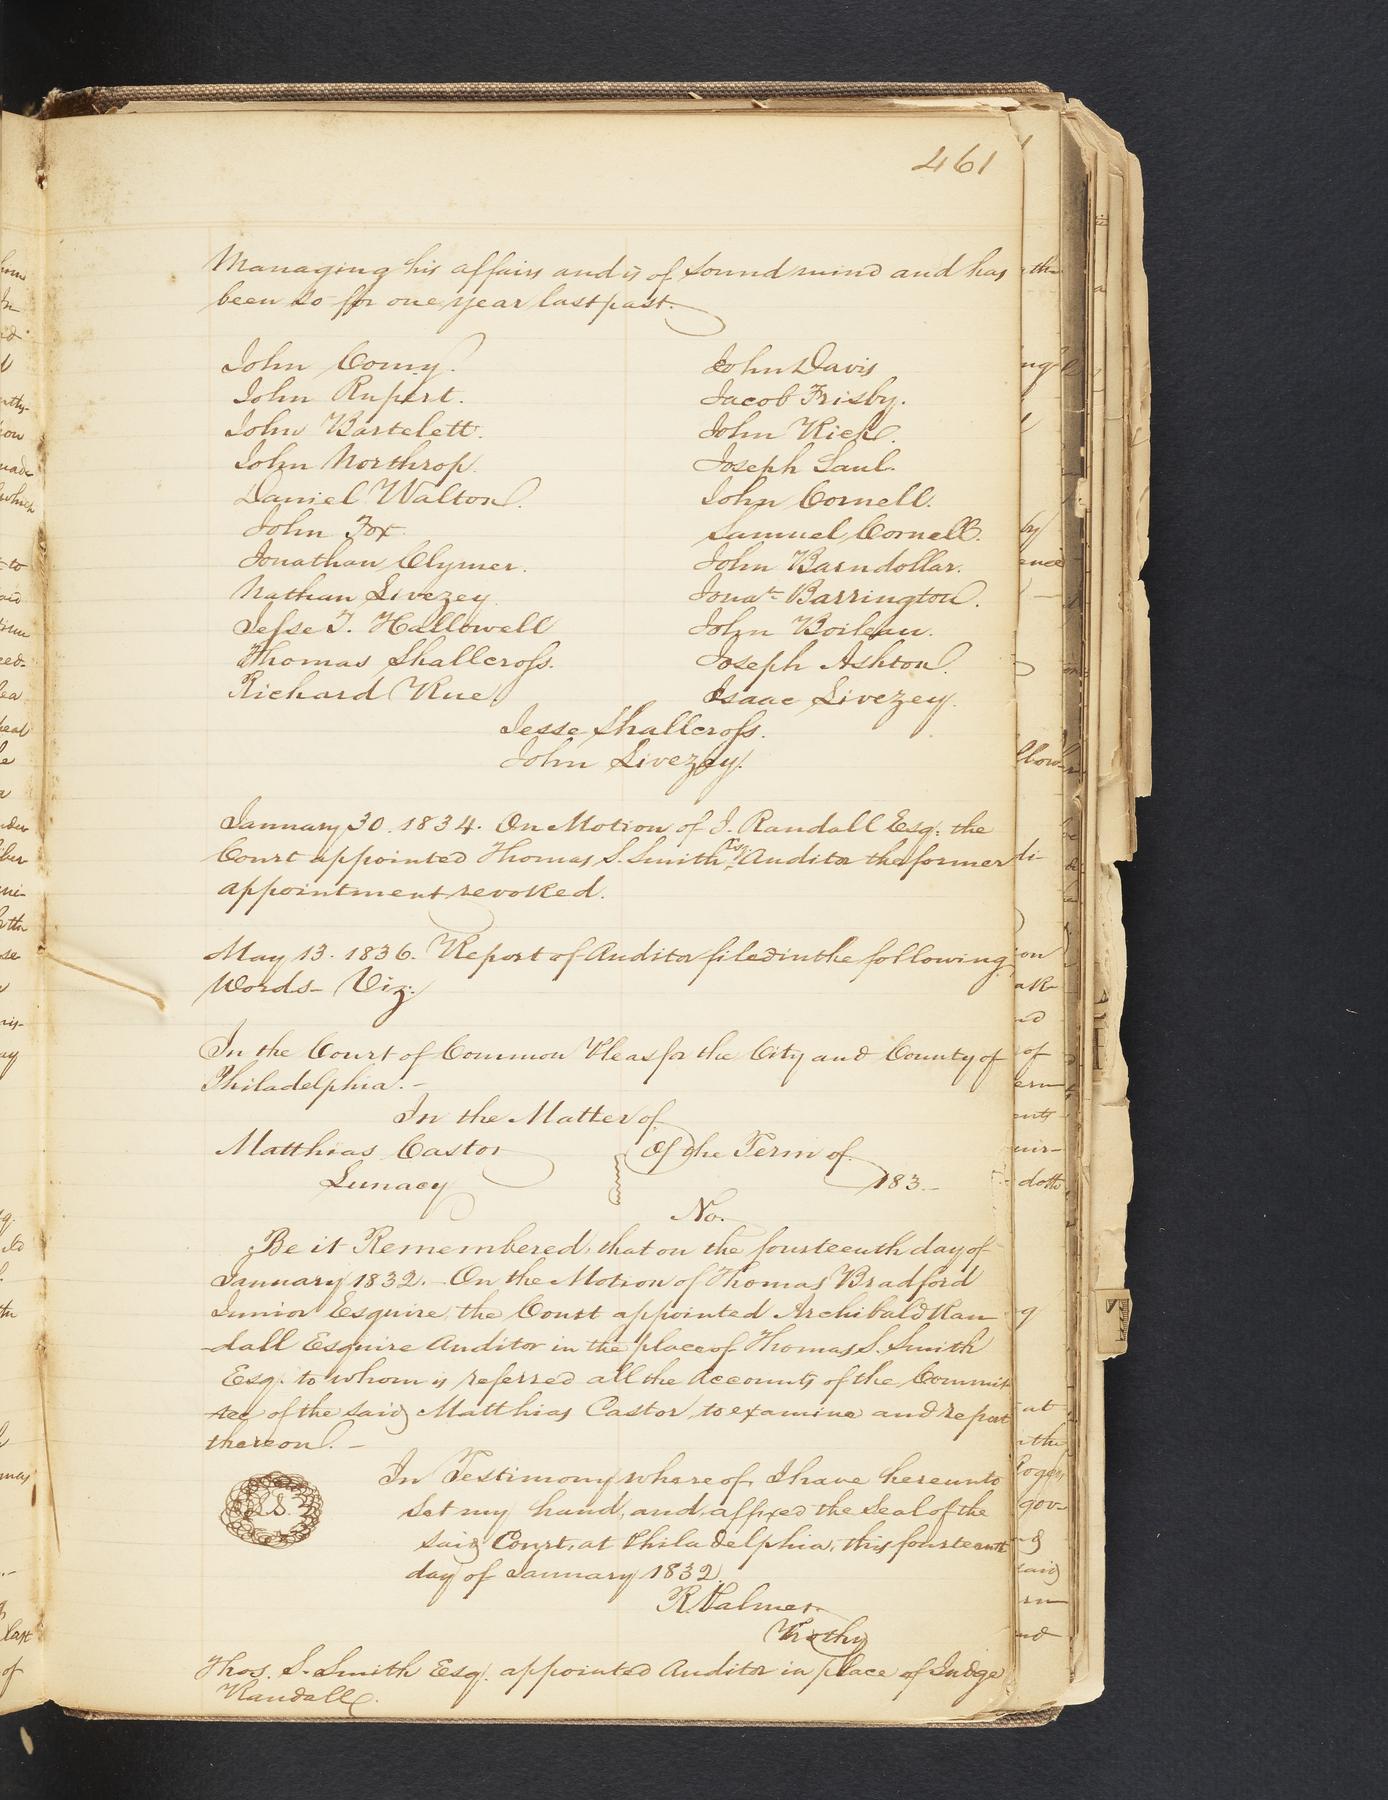 461
Managing his affairs and is of sound mind and has
been so for one year last past.
John Comy.
John Rupert.
John Bartelett.
John Northrop.
Daniel Walton.
John Fox
Jonathan Clymer.
Nathan Livezey
Jesse T. Hallowell
Thomas Shallcross.
Richard Rue.
John Davis
Jacob Frisby.
John Rich.
Joseph Saul.
John Cornell.
Samuel Cornell.
John Barndollar.
Jonan Barrington.
John Boileau.
Joseph Ashton.
Isaac Livezey.
Jesse Shallcross.
John Livezey.
January 30. 1834. On Motion of J. Randall Esq. the
Court appointed Thomas S. Smith Esq. Auditor the former
appointment revoked.
May 13. 1836. Report of Auditor filed in the following
Words - Viz:
In the Court of Common Pleas for the City and County of
Philadelphia. -
In the Matter of
Matthias Castor
Lunacy
Of the Term of
183 -
No.
Be it Remembered, that on the fourteenth day of
January 1832. - On the Motion of Thomas Bradford
Junior Esquire, the Court appointed Archibald Ran
-dall Esquire Auditor in the place of Thomas S. Smith
Esq. to whom is referred all the Accounts of the Commit
tee of the said Matthias Castor, to examine and report
thereon. -
L.S.
In Testimony whereof, I have hereunto
set my hand, and affixed the Seal of the
said Court, at Philadelphia, this fourteenth
day of January 1832.
R. Palmer
Prothy
Thos. S. Smith Esq. appointed Auditor in place of Judge
Randall.